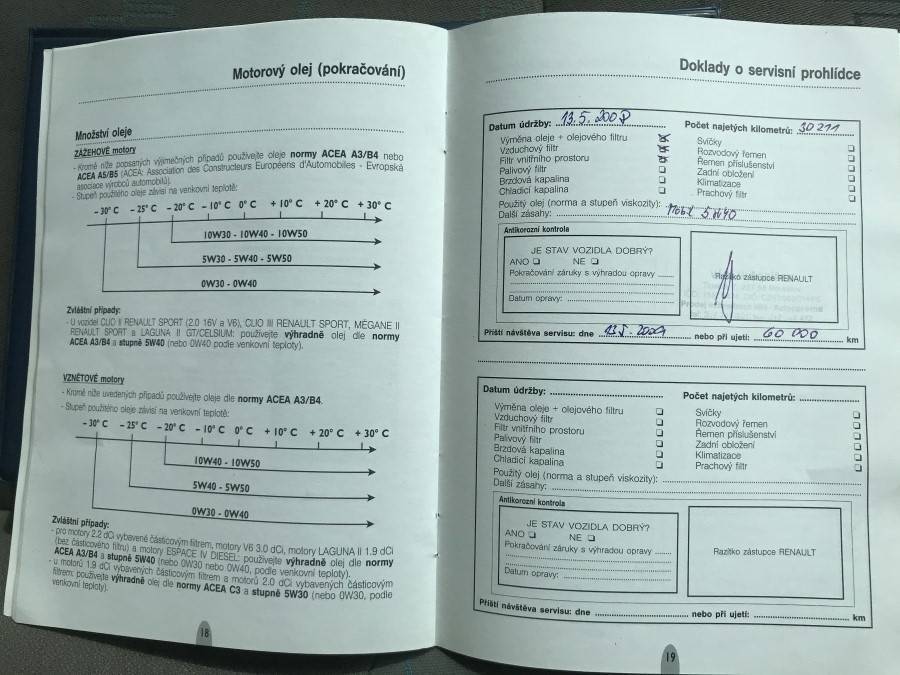 Motorový olej (pokračování)
Množství oleje
ZÁŽEHOVÉ motory
- Kromě níže popsaných výjimečných případů používejte oleje normy ACEA A3/B4 nebo
ACEA A5/B5 (ACEA: Association des Constructeurs Européens d'Automobiles - Evropská
asociace výrobců automobilů).
- Stupeň použitého oleje závisí na venkovní teplotě:
– 30° C – 25° C – 20° C – 10° C 0° C + 10° C + 20° C + 30° C
10W30 - 10W40 - 10W50
5W30 - 5W40 - 5W50
0W30 - 0W40
Zvláštní případy:
- U vozidel CLIO II RENAULT SPORT (2.0 16V a V6), CLIO III RENAULT SPORT, MÉGANE II
RENAULT SPORT a LAGUNA II GT/CELSIUM: používejte výhradně olej dle normy
ACEA A3/B4 a stupně 5W40 (nebo 0W40 podle venkovní teploty).
VZNĚTOVÉ motory
- Kromě níže uvedených případů použijte oleje dle normy ACEA A3/B4.
- Stupeň použitého oleje závisí na venkovní teplotě:
– 30° C – 25° C – 20° C – 10° C 0° C + 10° C + 20° C + 30° C
10W40 - 10W50
5W40 - 5W50
0W30 - 0W40
Zvláštní případy:
- pro motory 2.2 dCi vybavené částicovým filtrem, motory V6 3.0 dCi, motory LAGUNA II 1.9 dCi
(bez částicového filtru) a motory ESPACE IV DIESEL: používejte výhradně olej dle normy
ACEA A3/B4 a stupně 5W40 (nebo 0W30 nebo 0W40, podle venkovní teploty).
- u motorů 1.9 dCi vybavených částicovým filtrem a motorů 2.0 dCi vybavených částicovým
filtrem: používejte výhradně olej dle normy ACEA C3 a stupně 5W30 (nebo 0W30, podle
venkovní teploty).
18
Doklady o servisní prohlídce
Datum údržby: 13.5.2008 Počet najetých kilometrů: 30211
Výměna oleje + olejového filtru
Vzduchový filtr
Filtr vnitřního prostoru
Palivový filtr
Brzdová kapalina
Chladicí kapalina
Svíčky
Rozvodový řemen
Řemen příslušenství
Zadní obložení
Klimatizace
Prachový filtr
Použitý olej (norma a stupeň viskozity): Mobil 5W40
Další zásahy:
Antikorozní kontrola
JE STAV VOZIDLA DOBRÝ?
ANO NE
Pokračování záruky s výhradou opravy
Datum opravy:
Razítko zástupce RENAULT
Příští návštěva servisu: dne 13.5.2009 nebo při ujetí: 60 000 km
Datum údržby: Počet najetých kilometrů:
Výměna oleje + olejového filtru
Vzduchový filtr
Filtr vnitřního prostoru
Palivový filtr
Brzdová kapalina
Chladicí kapalina
Svíčky
Rozvodový řemen
Řemen příslušenství
Zadní obložení
Klimatizace
Prachový filtr
Použitý olej (norma a stupeň viskozity):
Další zásahy:
Antikorozní kontrola
JE STAV VOZIDLA DOBRÝ?
ANO NE
Pokračování záruky s výhradou opravy
Datum opravy:
Razítko zástupce RENAULT
Příští návštěva servisu: dne nebo při ujetí: km
19